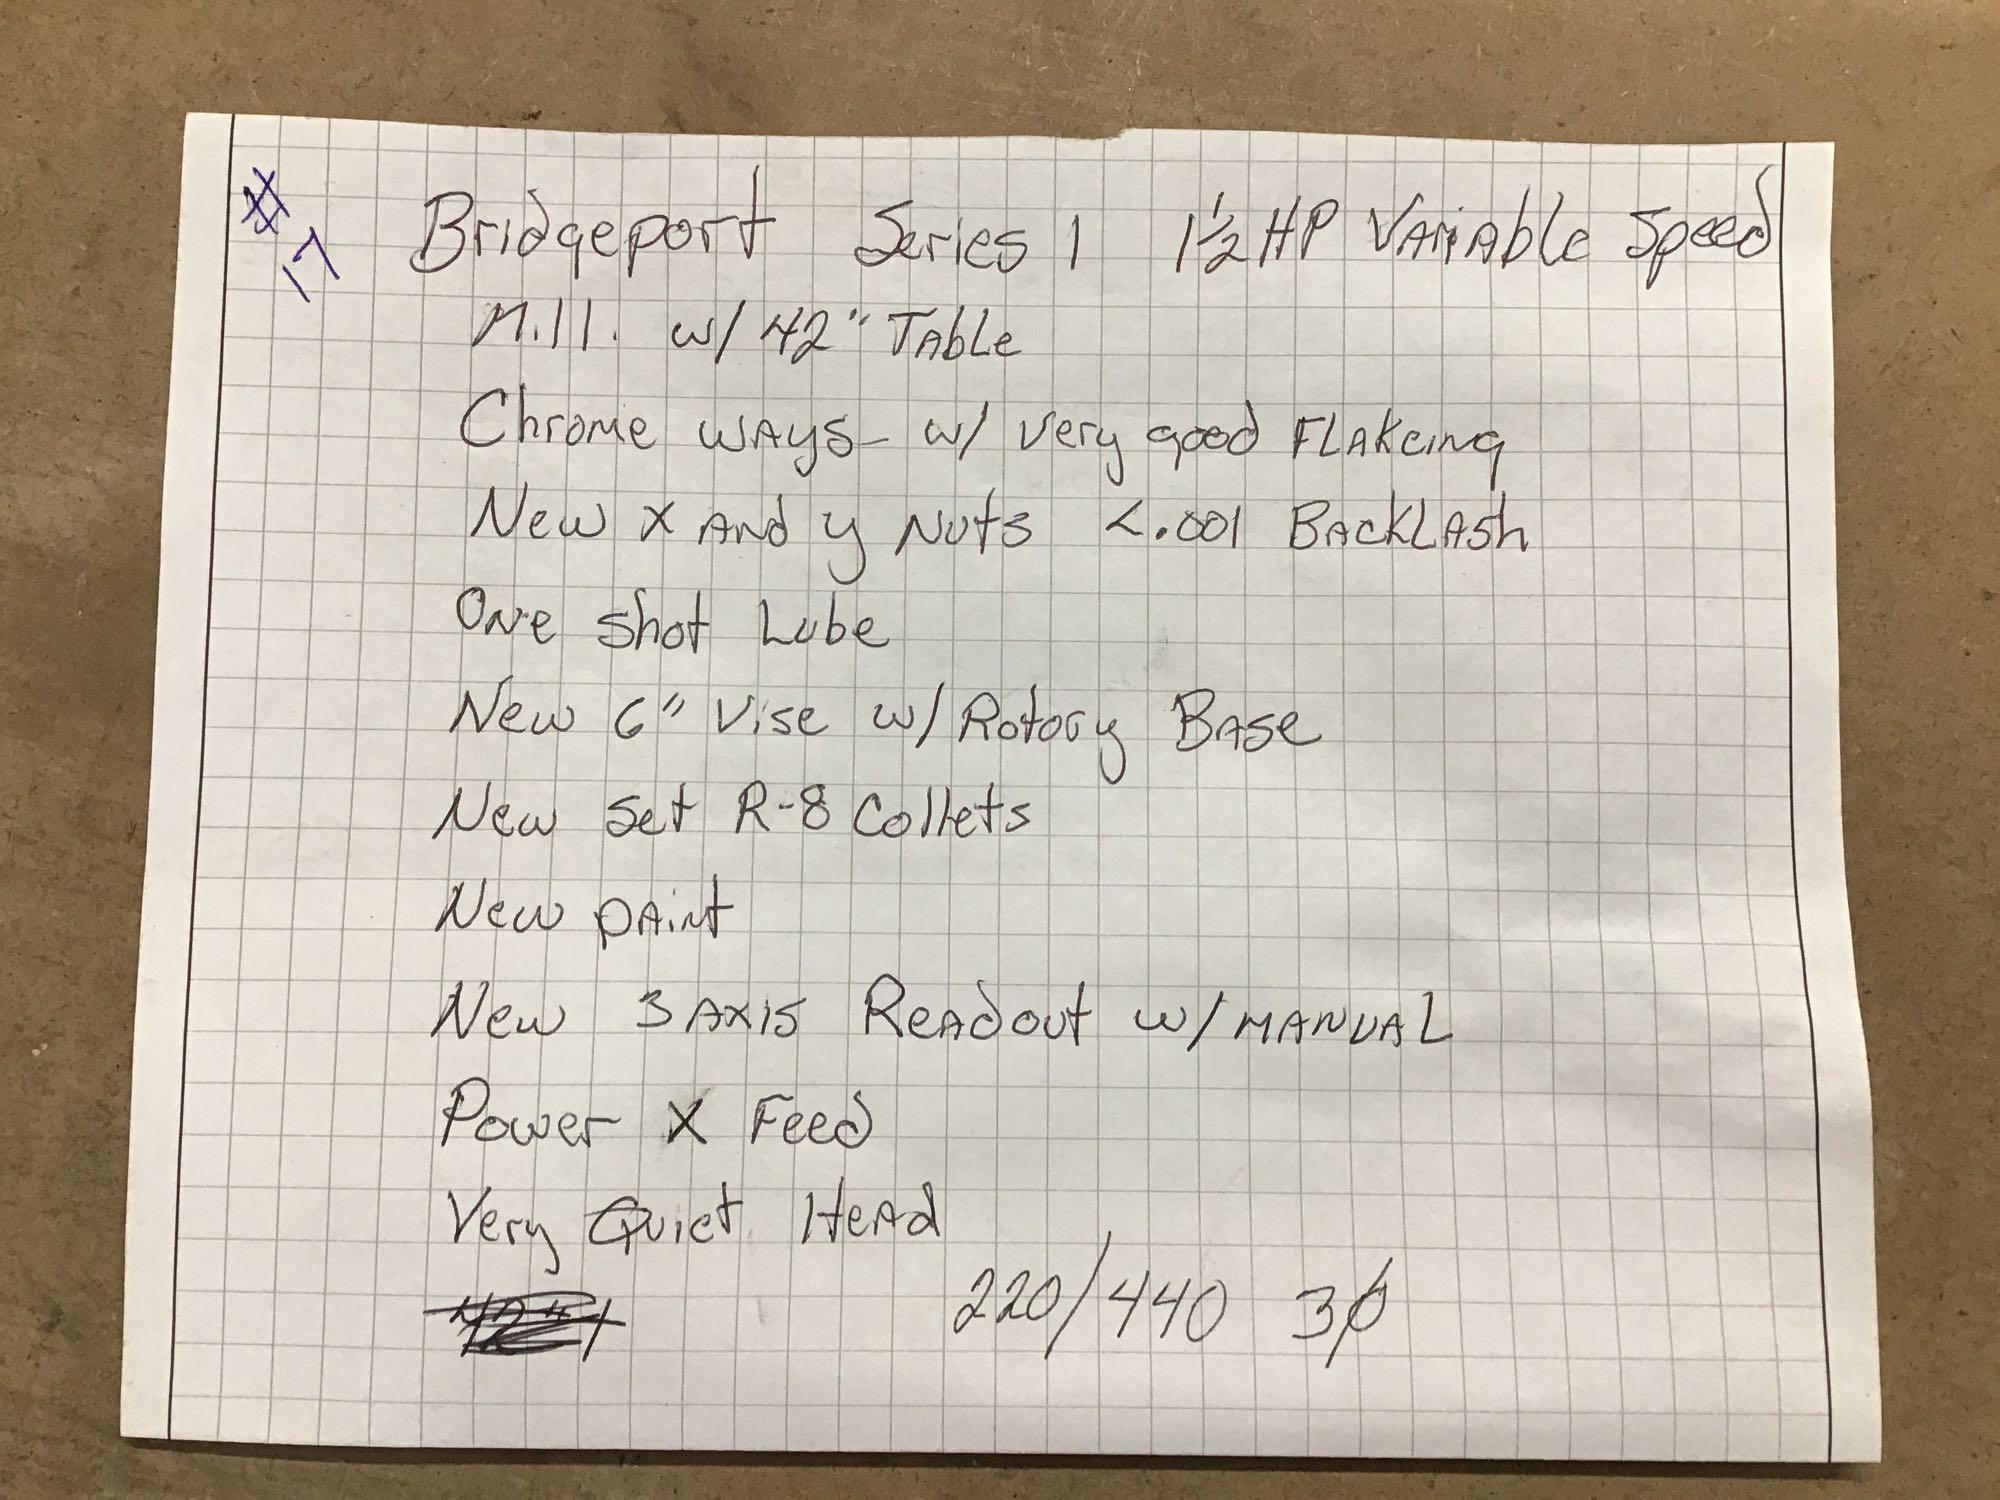 # 17
Bridgeport Series 1 1½ HP Variable Speed
Mill. w/ 42" Table
Chrome ways - w/ very good Flakeing
New X and y Nuts <.001 Backlash
One shot Lube
New 6" Vise w/ Rotory Base
New set R-8 Collets
New paint
New 3 Axis Readout w/ MANUAL
Power X Feed
Very Quiet Head
220/440 3ϕ